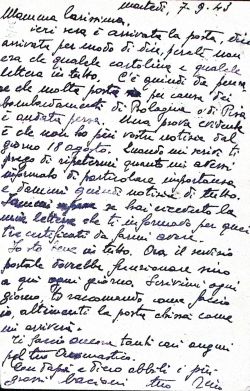 martedì 7.9.43
Mamma carissima,
ieri sera è arrivata la posta, dico
arrivata per modo di dire, perché non
era che qualche cartolina e qualche
lettera in tutto. C'è quindi da pensa
re che molta posta per causa dei
bombardamenti di Bologna o di Pisa
è andata persa. Una prova evidente
è che non ho più vostre notizie dal
giorno 18 agosto. Quando mi scrivi ti
prego di ripetermi quanto mi avevi
informato di particolare importanza
e dammi quindi notizie di tutto.
se hai ricevuto la
mia lettera che ti informavo per quei
tre certificati da farmi avere.
Io sto bene in tutto. Ora il servizio
postale dovrebbe funzionare sino
a qui ogni giorno. Scrivimi ogni
giorno, ti raccomando, come faccio
io, altrimenti la posta chissà come
mi arriverà.
Ti faccio ancora tanti cari auguri
pel tuo Onomastico.
Con Papà e Piero abbiti i più
grossi bacioni tuo